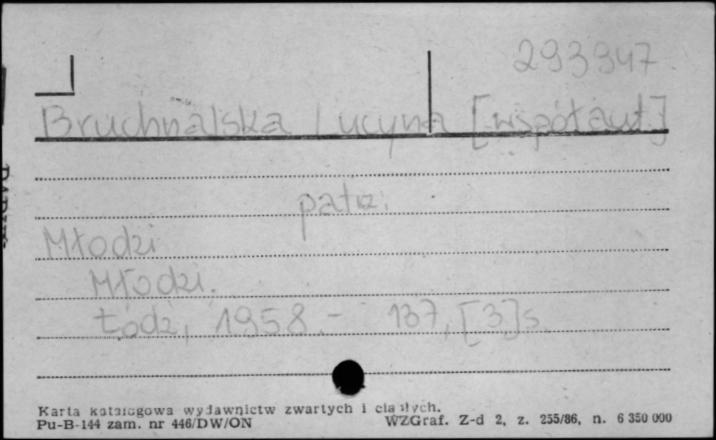 293947
Bruchnalska Lucyna [współaut.]
patrz:
Młodzi
Młodzi.
Łódź, 1958.- 137, [3] s.
Karta katalogowa wydawnictw zwartych i ciągłych.
Pu-B-144 zam. nr 446/DW/ON WZGraf. Z-d 2, z. 255/86, n. 6 350 000